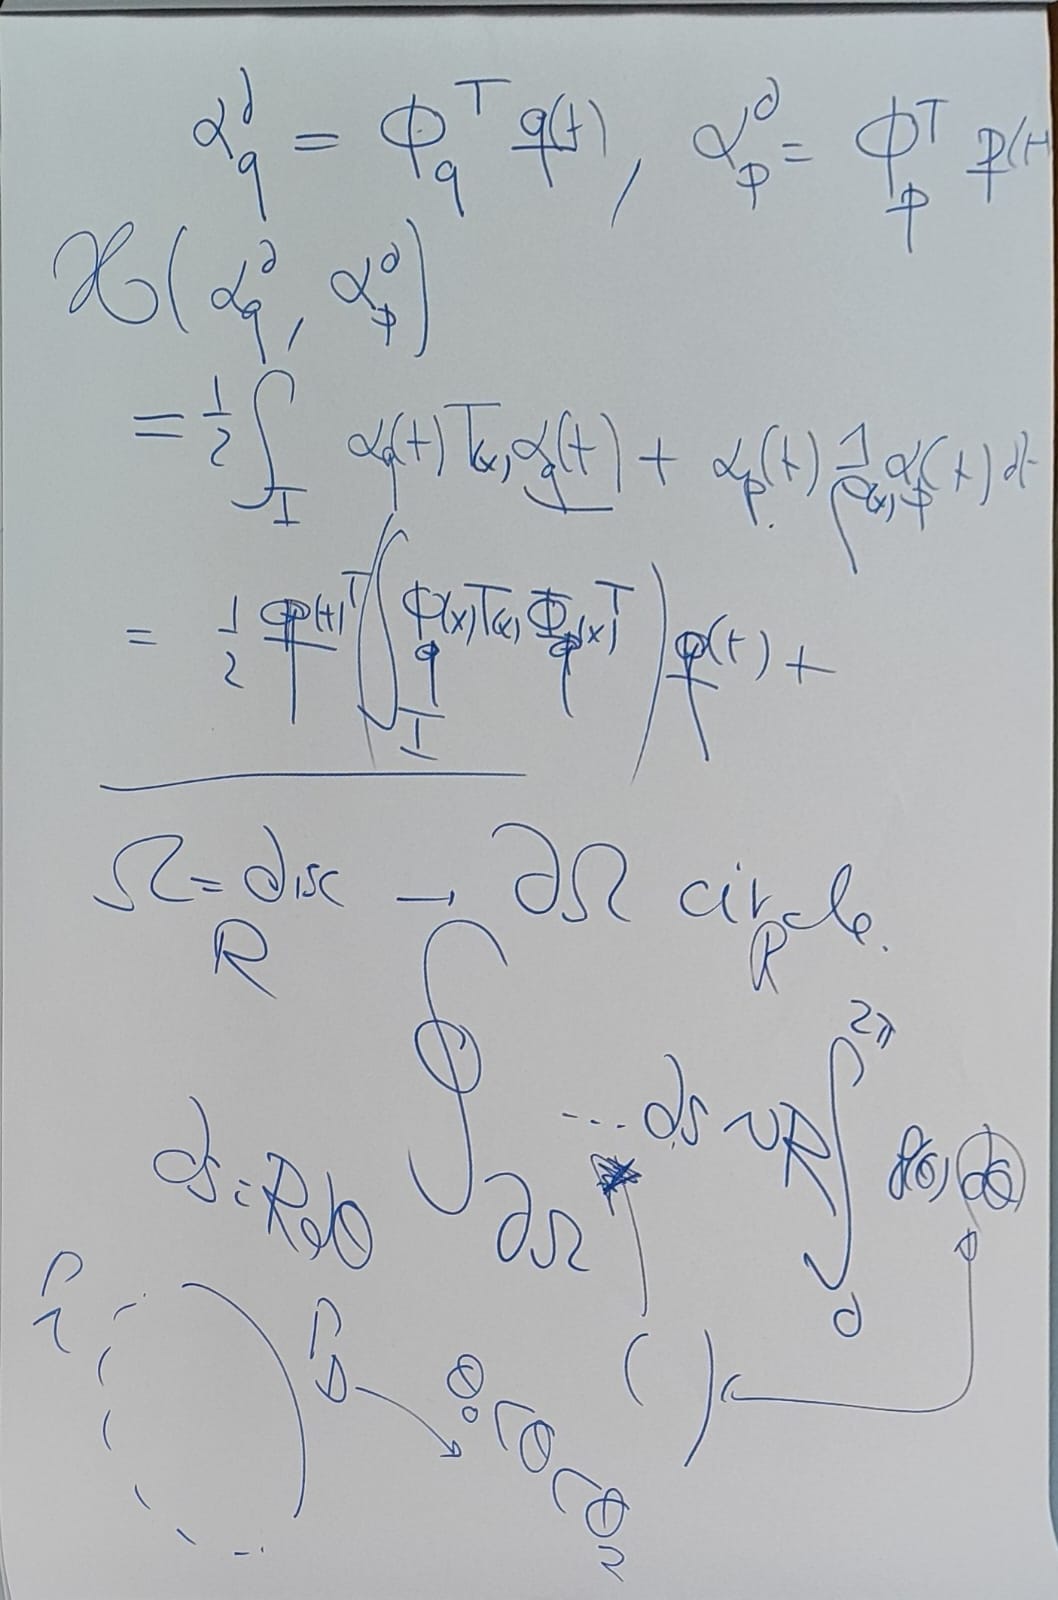 α_q^∂ = Φ_q^T q(t), α_p^∂ = Φ_p^T p(t
ℋ(α_q^∂, α_p^∂)
= 1/2 ∫_I α_q(t) T(x) α_q(t) + α_p(t) 1/ρ(x) α_p(t) dt
= 1/2 q(t)^T (∫_I Φ_q(x) T(x) Φ_q(x)^T) q(t) +
Ω = disc → ∂Ω circle.
R R
∮_∂Ω ... ds ~ R ∫_0^2π f(θ) dθ
ds = R dθ
( )
Γ_D
θ_0 < θ < θ_2